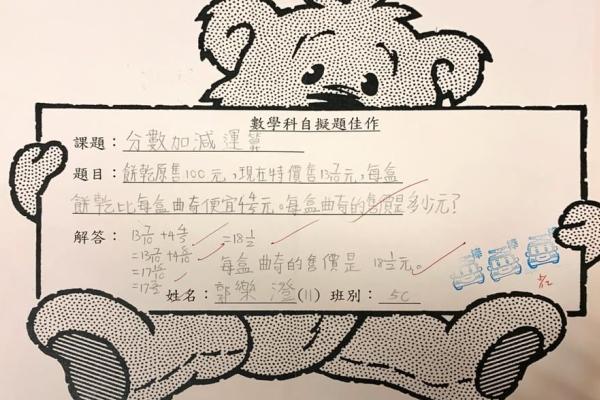 數學科自擬題佳作
課題：分數加減運算
題目：餅乾原售100元，現在特價售13 7/10元，每盒
餅乾比每盒曲奇便宜4 4/5元。每盒曲奇的售價是多少元？
解答：13 7/10 + 4 4/5
=13 7/10 + 4 8/10
=17 15/10
=17 3/2
=18 1/2
每盒曲奇的售價是 18 1/2元。
姓名：郭樂澄(11) 班別：5C